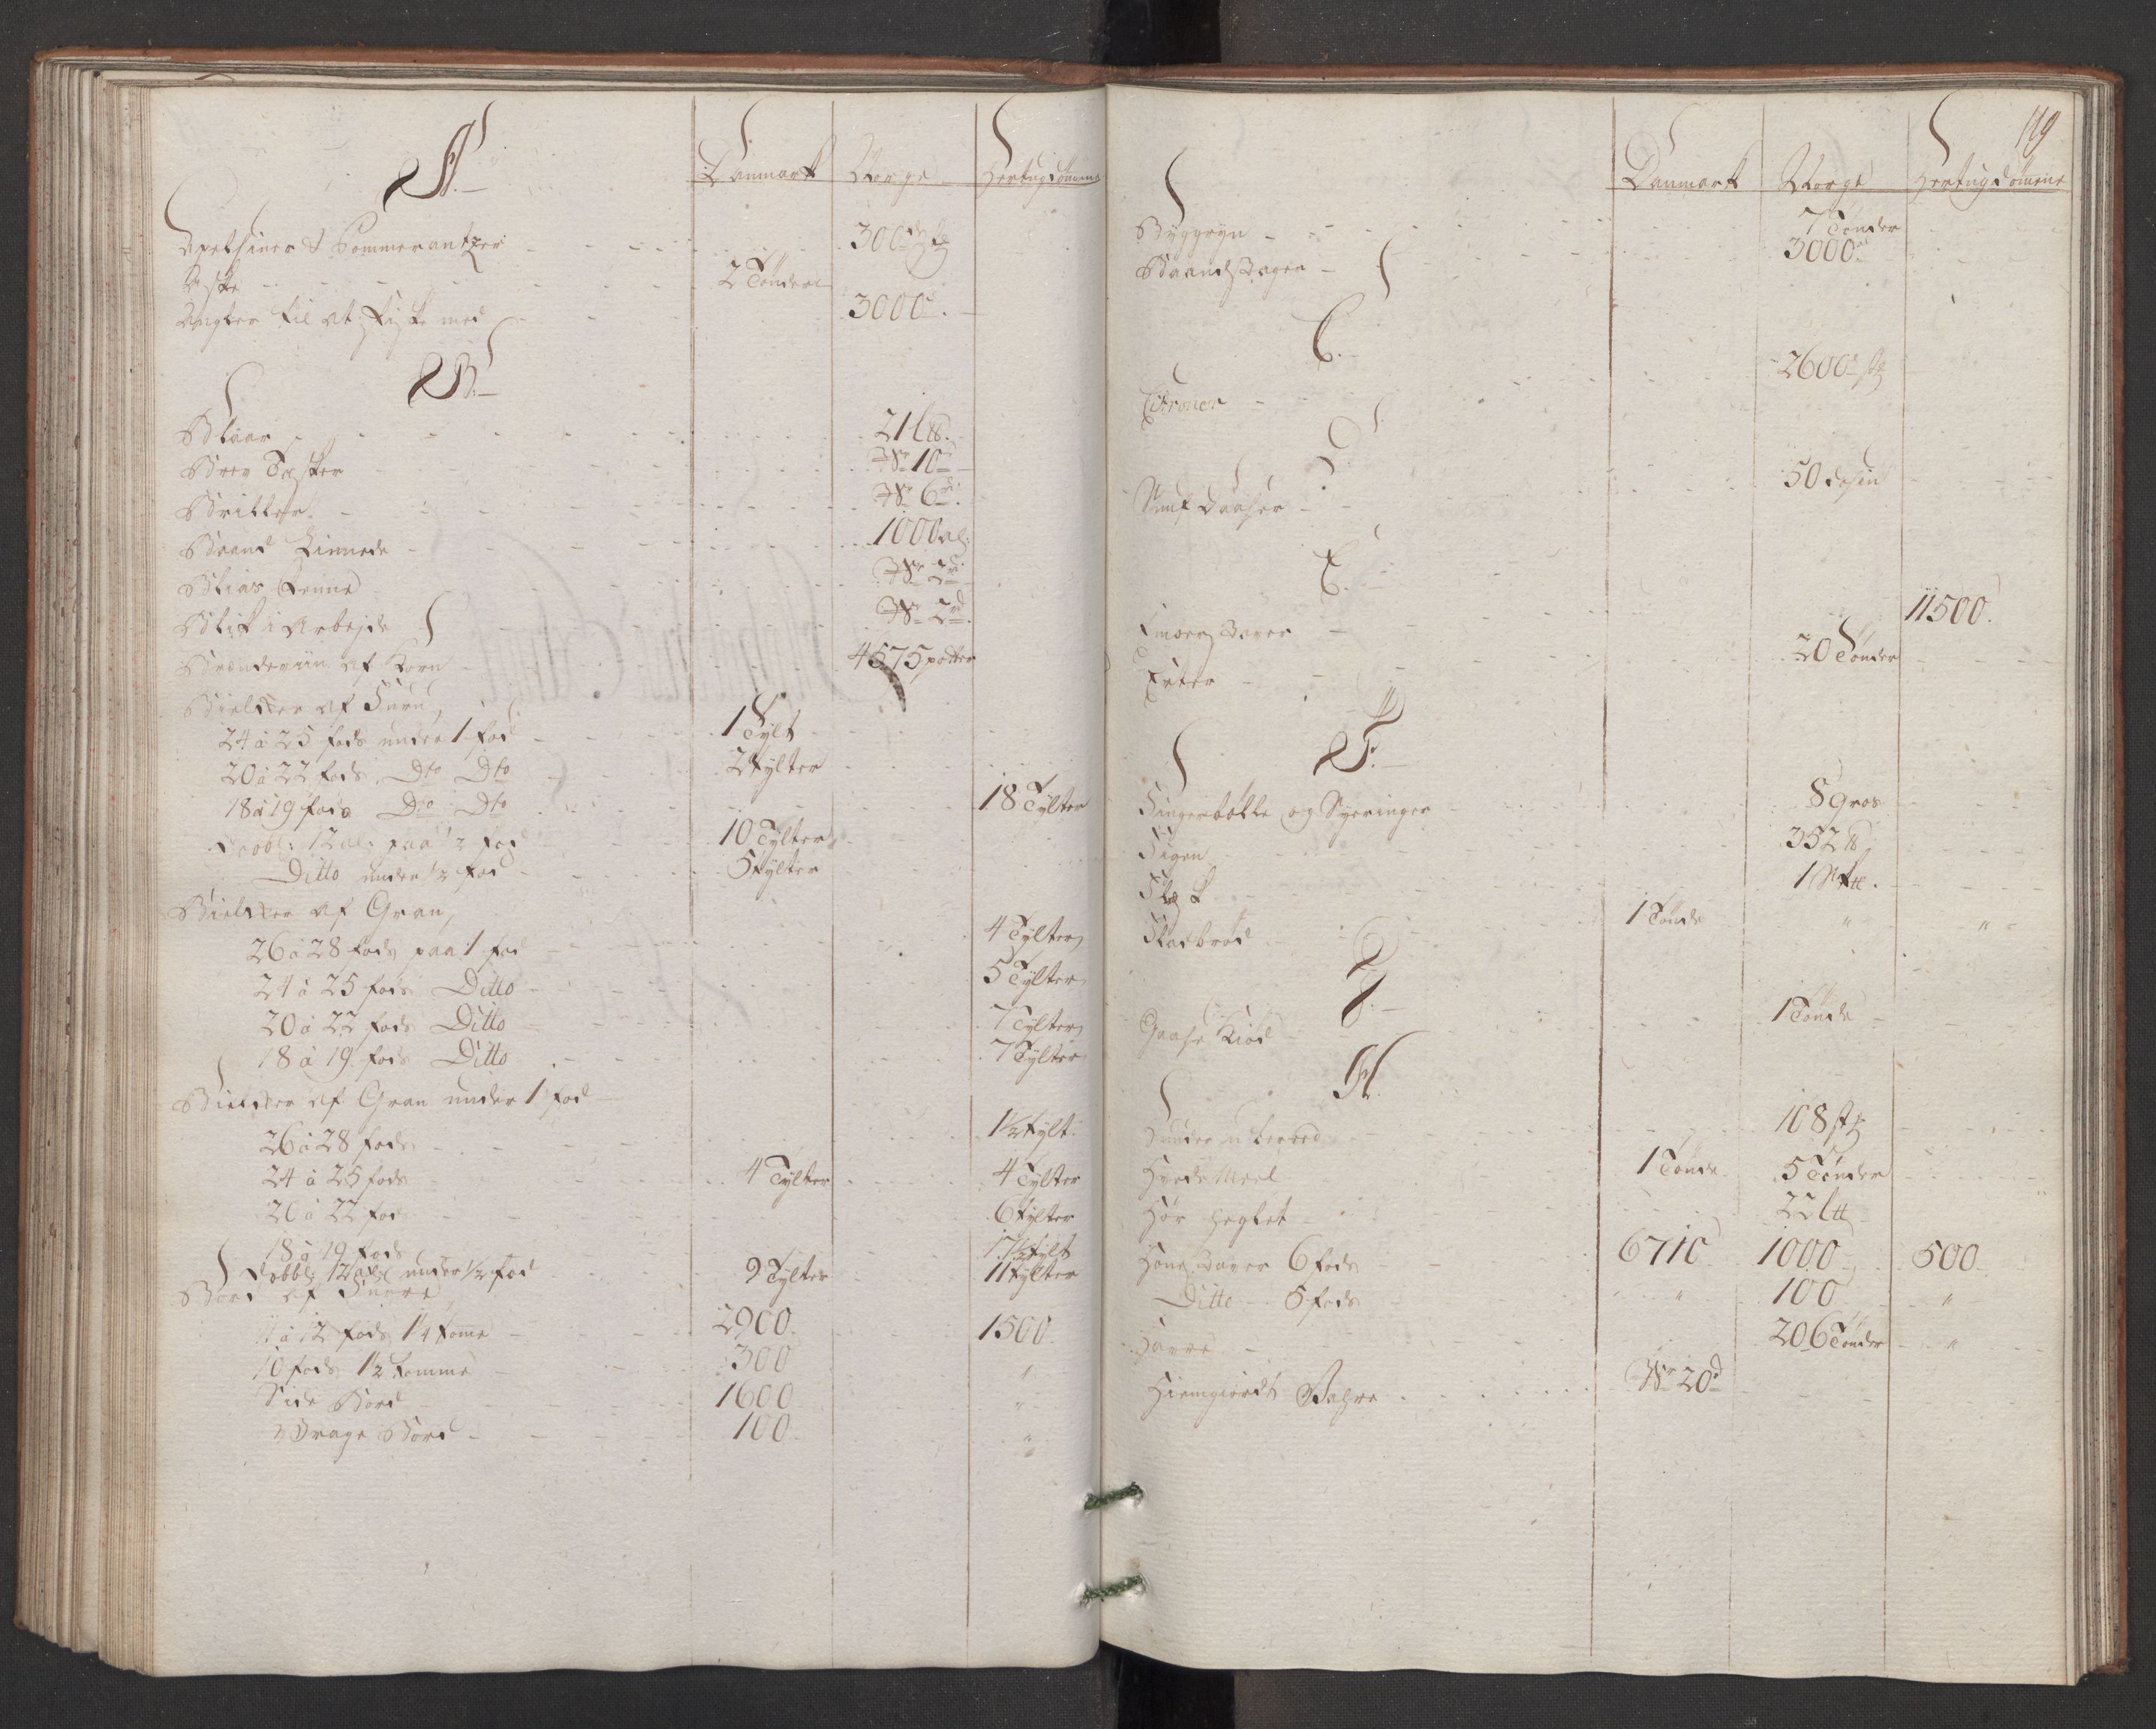 A.
Danmark Norge Hertugdömene
Apelsiner & Pommerantzer 300de stk
Aske 2 Tönder
Angler til at Fiske med 3000
B.
Blaar 21 l℔.
Brev Tasker 10
Briller 6
Brand Linnede 1000 al:
Blias Penne 3
Blik i Arbejde 2
Brændeviin af Korn 4575 potter
Bielker af Furu,
24 à 25 fods under 1 fod 1 Tylt
20 à 22 fods Dto Dto 2 Tylter
18 à 19 fods Dto Dto 18 Tylter
Dobb: 12 al: paa 1/2 fod 10 Tylter
Ditto under 1/2 fod 5 Tylter
Bielker af Gran,
26 à 28 fods paa 1 fod 4 Tylter
24 à 25 fods Ditto 5 Tylter
20 à 22 fods Ditto 7 Tylter
18 à 19 fods Ditto 7 Tylter
Bielker af Gran under 1 fod
26 à 28 fods 1/2 Tylt
24 à 25 fods 4 Tylter 4 Tylter
20 à 22 fod 6 Tylter
18 à 19 fods 17 1/2 Tylt
Dobb: 12 al: under 1/2 fod 9 Tylter 11 Tylter
Bord af Furre
11 à 12 fods 1 1/4 Tomme 2900 1500
10 fods 1 1/2 Tomme 300 "
Side Bord 1600 "
Vrage Bord 100 "
119
Danmark Norge Hertugdömene
Byggryn 7 Tönder
Baandstager 3000
C.
Citroner 2600 stk
D.
Snuf Daaser 50 dosin
E.
11500.
Erter 20 Tönder
F.
Fingerbölle og Syeringer 8 Gros
Figen 352 ℔
Flesk 1
Fladbröd 1 Tönde " "
G.
Gaase Kiöd 1 Tönde
H.
Huuder ubereed 108 stk
Hvede Meel 1 Tönde 5 Tönder
Hör heglet 22 l℔
Höne Baner 6 fods 6710 1000 500
Ditto 5 fods " 100 "
Havre 206 Tönder "
Hiemgiordt 20